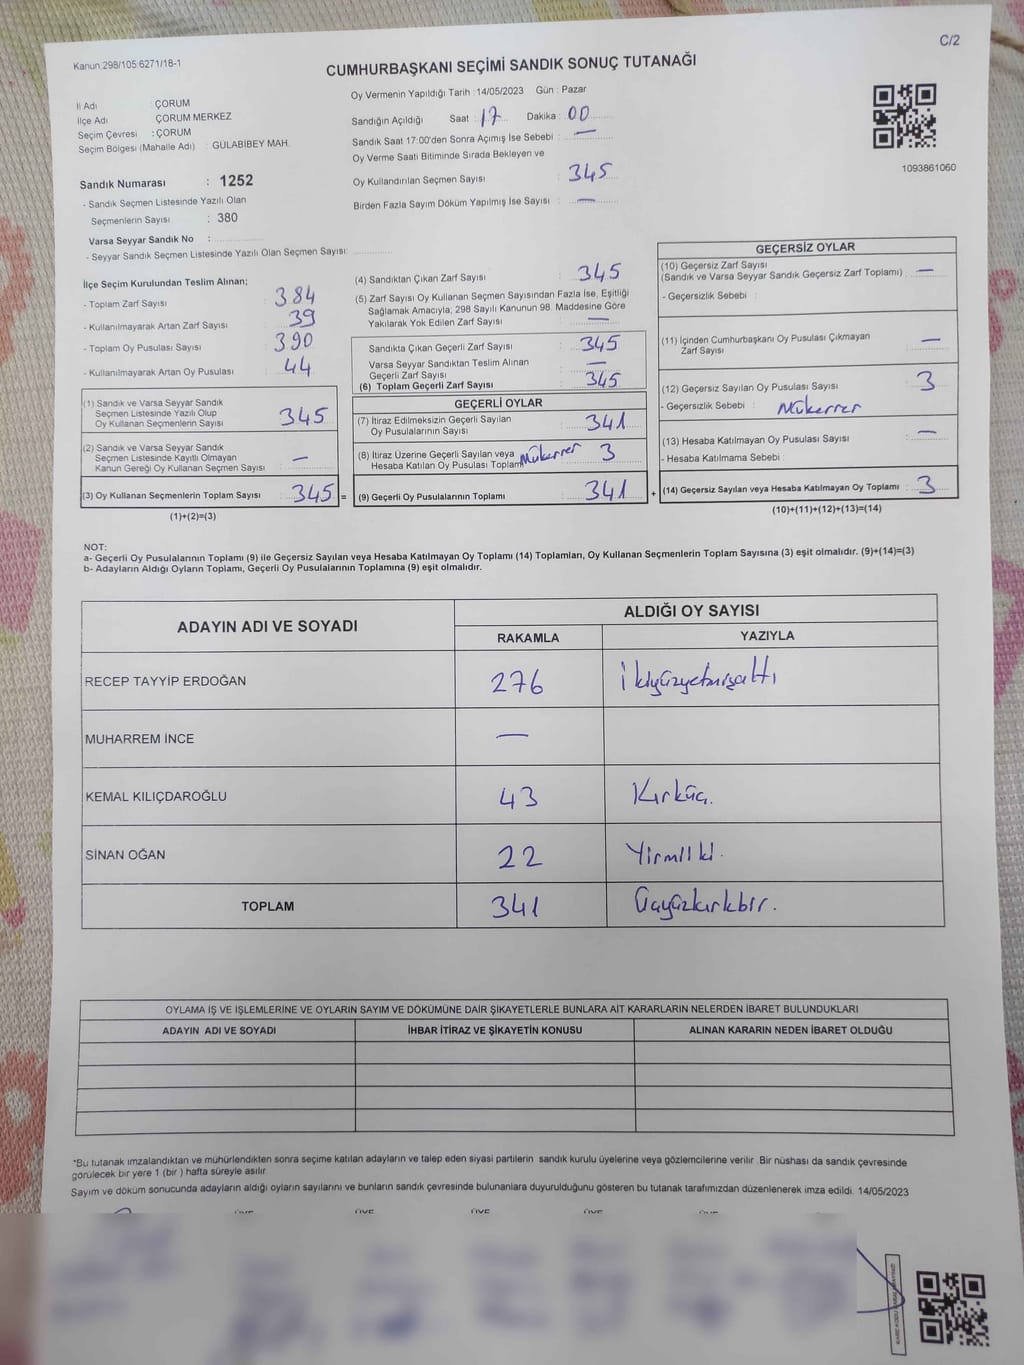 C/2
Kanun:298/105:6271/18-1
CUMHURBAŞKANI SEÇİMİ SANDIK SONUÇ TUTANAĞI
İl Adı : ÇORUM
İlçe Adı : ÇORUM MERKEZ
Seçim Çevresi : ÇORUM
Seçim Bölgesi (Mahalle Adı) : GÜLABİBEY MAH.
Sandık Numarası : 1252
- Sandık Seçmen Listesinde Yazılı Olan
Seçmenlerin Sayısı : 380
Varsa Seyyar Sandık No :
- Seyyar Sandık Seçmen Listesinde Yazılı Olan Seçmen Sayısı:
Oy Vermenin Yapıldığı Tarih : 14/05/2023 Gün : Pazar
Sandığın Açıldığı Saat : 17 Dakika : 00
Sandık Saat 17:00'den Sonra Açımış İse Sebebi : —
Oy Verme Saati Bitiminde Sırada Bekleyen ve
Oy Kullandırılan Seçmen Sayısı : 345
Birden Fazla Sayım Döküm Yapılmış İse Sayısı : —
1093861060
İlçe Seçim Kurulundan Teslim Alınan;
- Toplam Zarf Sayısı : 384
- Kullanılmayarak Artan Zarf Sayısı : 39
- Toplam Oy Pusulası Sayısı : 390
- Kullanılmayarak Artan Oy Pusulası : 44
(1) Sandık ve Varsa Seyyar Sandık
Seçmen Listesinde Yazılı Olup
Oy Kullanan Seçmenlerin Sayısı : 345
(2) Sandık ve Varsa Seyyar Sandık
Seçmen Listesinde Kayıtlı Olmayan
Kanun Gereği Oy Kullanan Seçmen Sayısı : —
(3) Oy Kullanan Seçmenlerin Toplam Sayısı : 345 =
(1)+(2)=(3)
(4) Sandıktan Çıkan Zarf Sayısı : 345
(5) Zarf Sayısı Oy Kullanan Seçmen Sayısından Fazla İse, Eşitliği
Sağlamak Amacıyla, 298 Sayılı Kanunun 98. Maddesine Göre
Yakılarak Yok Edilen Zarf Sayısı : —
Sandıkta Çıkan Geçerli Zarf Sayısı : 345
Varsa Seyyar Sandıktan Teslim Alınan
Geçerli Zarf Sayısı : —
(6) Toplam Geçerli Zarf Sayısı : 345
GEÇERLİ OYLAR
(7) İtiraz Edilmeksizin Geçerli Sayılan
Oy Pusulalarının Sayısı : 341
(8) İtiraz Üzerine Geçerli Sayılan veya
Hesaba Katılan Oy Pusulası Toplam Mükerrer 3
(9) Geçerli Oy Pusulalarının Toplamı : 341 +
GEÇERSİZ OYLAR
(10) Geçersiz Zarf Sayısı
(Sandık ve Varsa Seyyar Sandık Geçersiz Zarf Toplamı) : —
- Geçersizlik Sebebi :
(11) İçinden Cumhurbaşkanı Oy Pusulası Çıkmayan
Zarf Sayısı : —
(12) Geçersiz Sayılan Oy Pusulası Sayısı : 3
- Geçersizlik Sebebi : Mükerrer
(13) Hesaba Katılmayan Oy Pusulası Sayısı : —
- Hesaba Katılmama Sebebi :
(14) Geçersiz Sayılan veya Hesaba Katılmayan Oy Toplamı : 3
(10)+(11)+(12)+(13)=(14)
NOT:
a- Geçerli Oy Pusulalarının Toplamı (9) ile Geçersiz Sayılan veya Hesaba Katılmayan Oy Toplamı (14) Toplamları, Oy Kullanan Seçmenlerin Toplam Sayısına (3) eşit olmalıdır. (9)+(14)=(3)
b- Adayların Aldığı Oyların Toplamı, Geçerli Oy Pusulalarının Toplamına (9) eşit olmalıdır.
ADAYIN ADI VE SOYADI
ALDIĞI OY SAYISI
RAKAMLA YAZIYLA
RECEP TAYYİP ERDOĞAN 276 İkiyüzyetmişaltı
MUHARREM İNCE —
KEMAL KILIÇDAROĞLU 43 Kırküç.
SİNAN OĞAN 22 Yirmiiki.
TOPLAM 341 Üçyüzkırkbir.
OYLAMA İŞ VE İŞLEMLERİNE VE OYLARIN SAYIM VE DÖKÜMÜNE DAİR ŞİKAYETLERLE BUNLARA AİT KARARLARIN NELERDEN İBARET BULUNDUKLARI
ADAYIN ADI VE SOYADI İHBAR İTİRAZ VE ŞİKAYETİN KONUSU ALINAN KARARIN NEDEN İBARET OLDUĞU
*Bu tutanak imzalandıktan ve mühürlendikten sonra seçime katılan adayların ve talep eden siyasi partilerin sandık kurulu üyelerine veya gözlemcilerine verilir .Bir nüshası da sandık çevresinde
görülecek bir yere 1 (bir ) hafta süreyle asılır
Sayım ve döküm sonucunda adayların aldığı oyların sayılarını ve bunların sandık çevresinde bulunanlara duyurulduğunu gösteren bu tutanak tarafımızdan düzenlenerek imza edildi. 14/05/2023
ÜYE ÜYE ÜYE ÜYE ÜYE